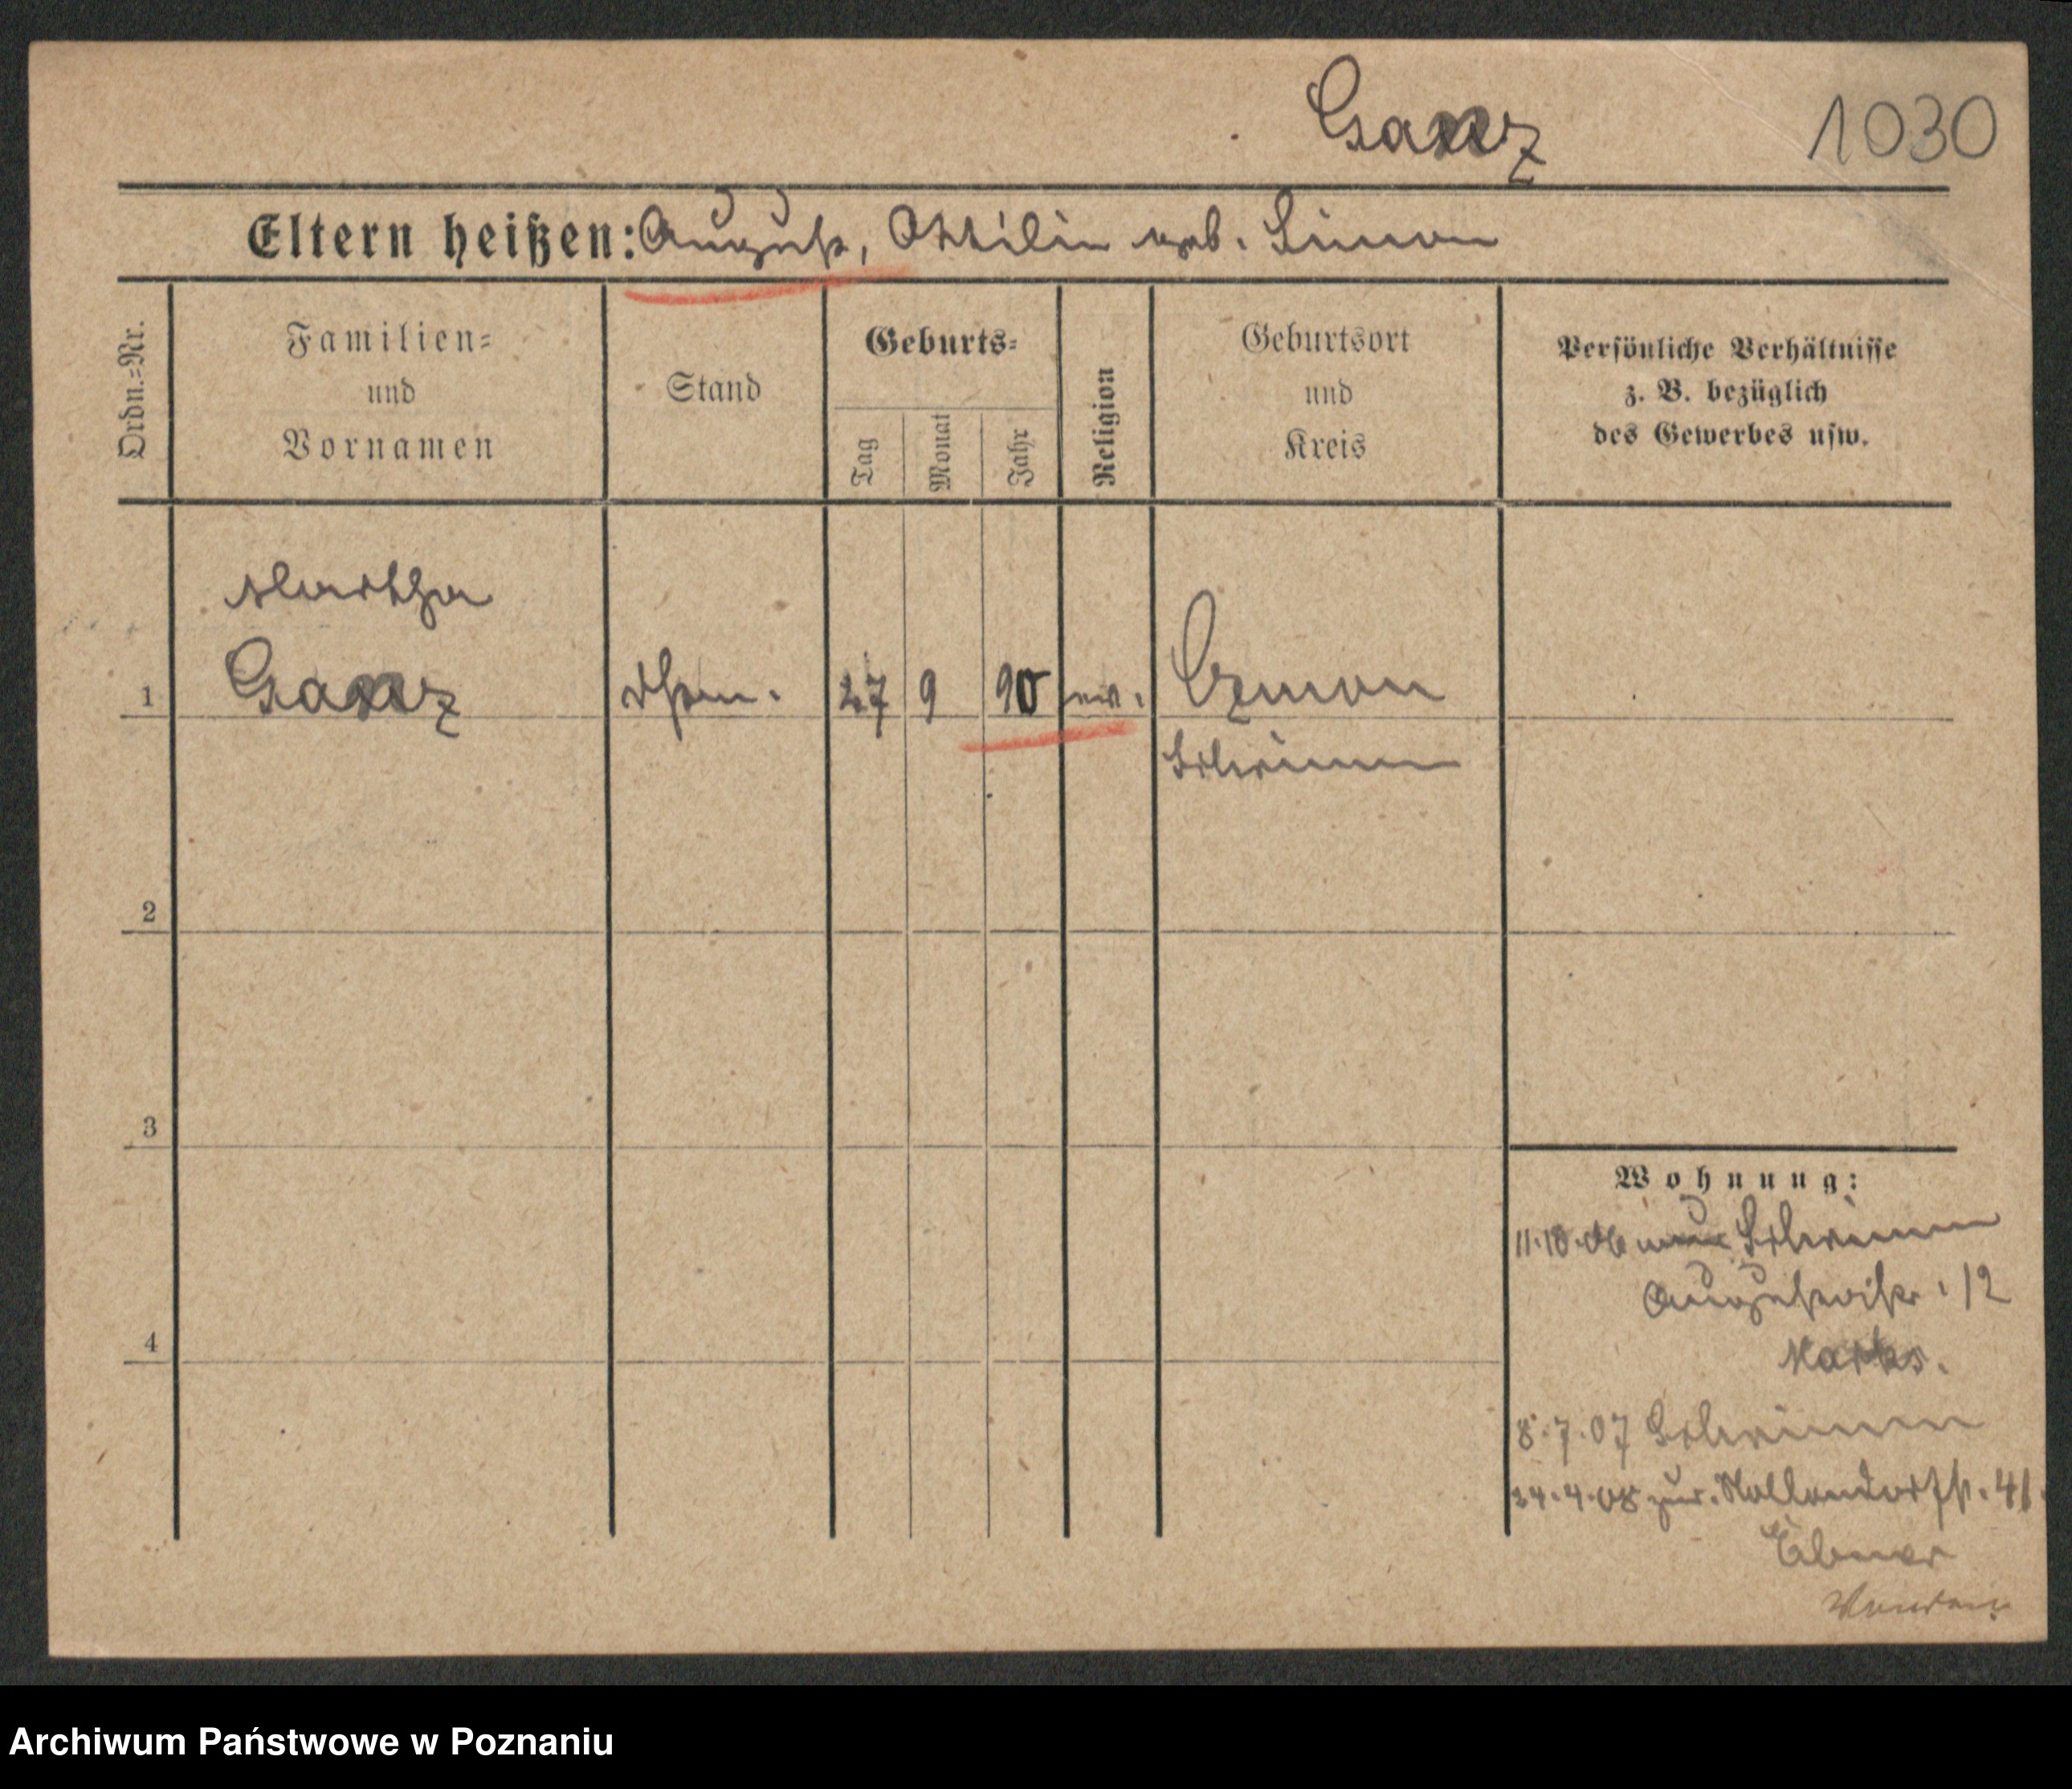 Ganz 1030
Eltern heißen: August, Ottilie geb. Simon
Ordn.=Nr.
Familien=
und
Vornamen
Stand
Geburts=
Tag
Monat
Jahr
Religion
Geburtsort
und
Kreis
Persönliche Verhältnisse
z. B. bezüglich
des Gewerbes usw.
Martha
1 Ganz 27 9 90 ev. Czmon
Schrimm
2
3
4
Wohnung:
11.10.06 Schrimm
12
8.7.07 Schrimm
24.4.08 zur. Nollendorfstr. 41.
Archiwum Państwowe w Poznaniu